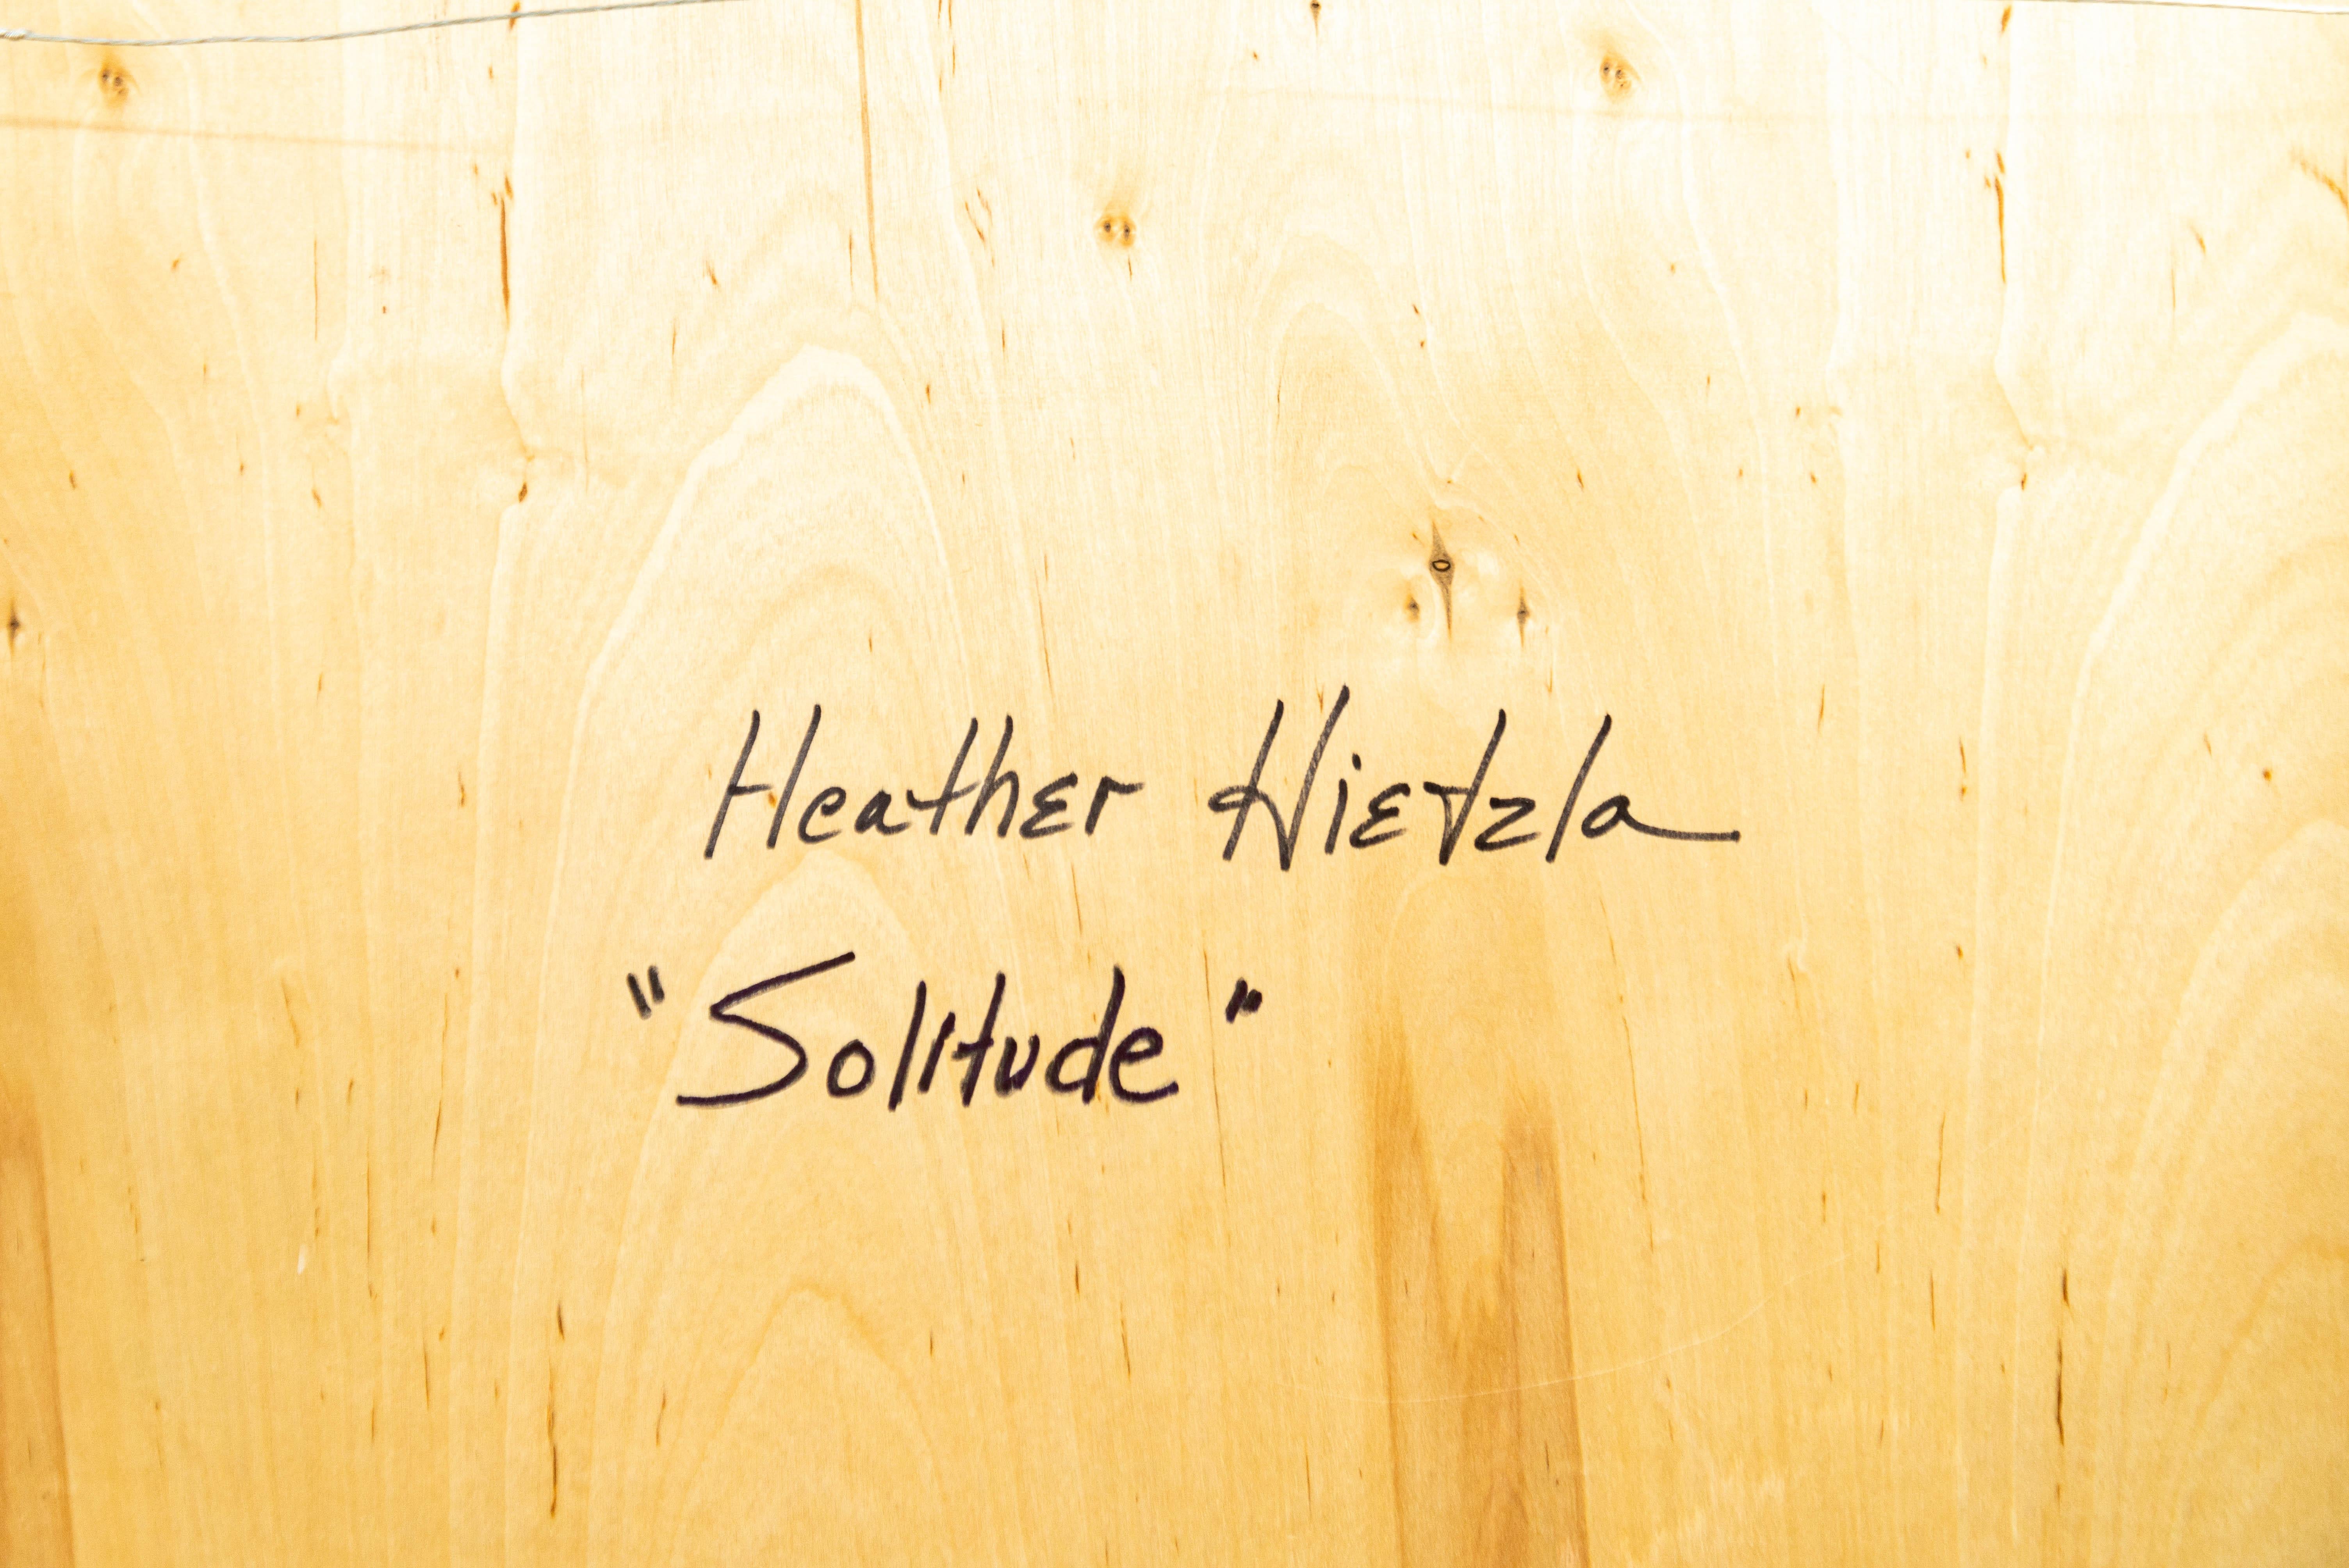 Heather Hietzla
"Solitude"